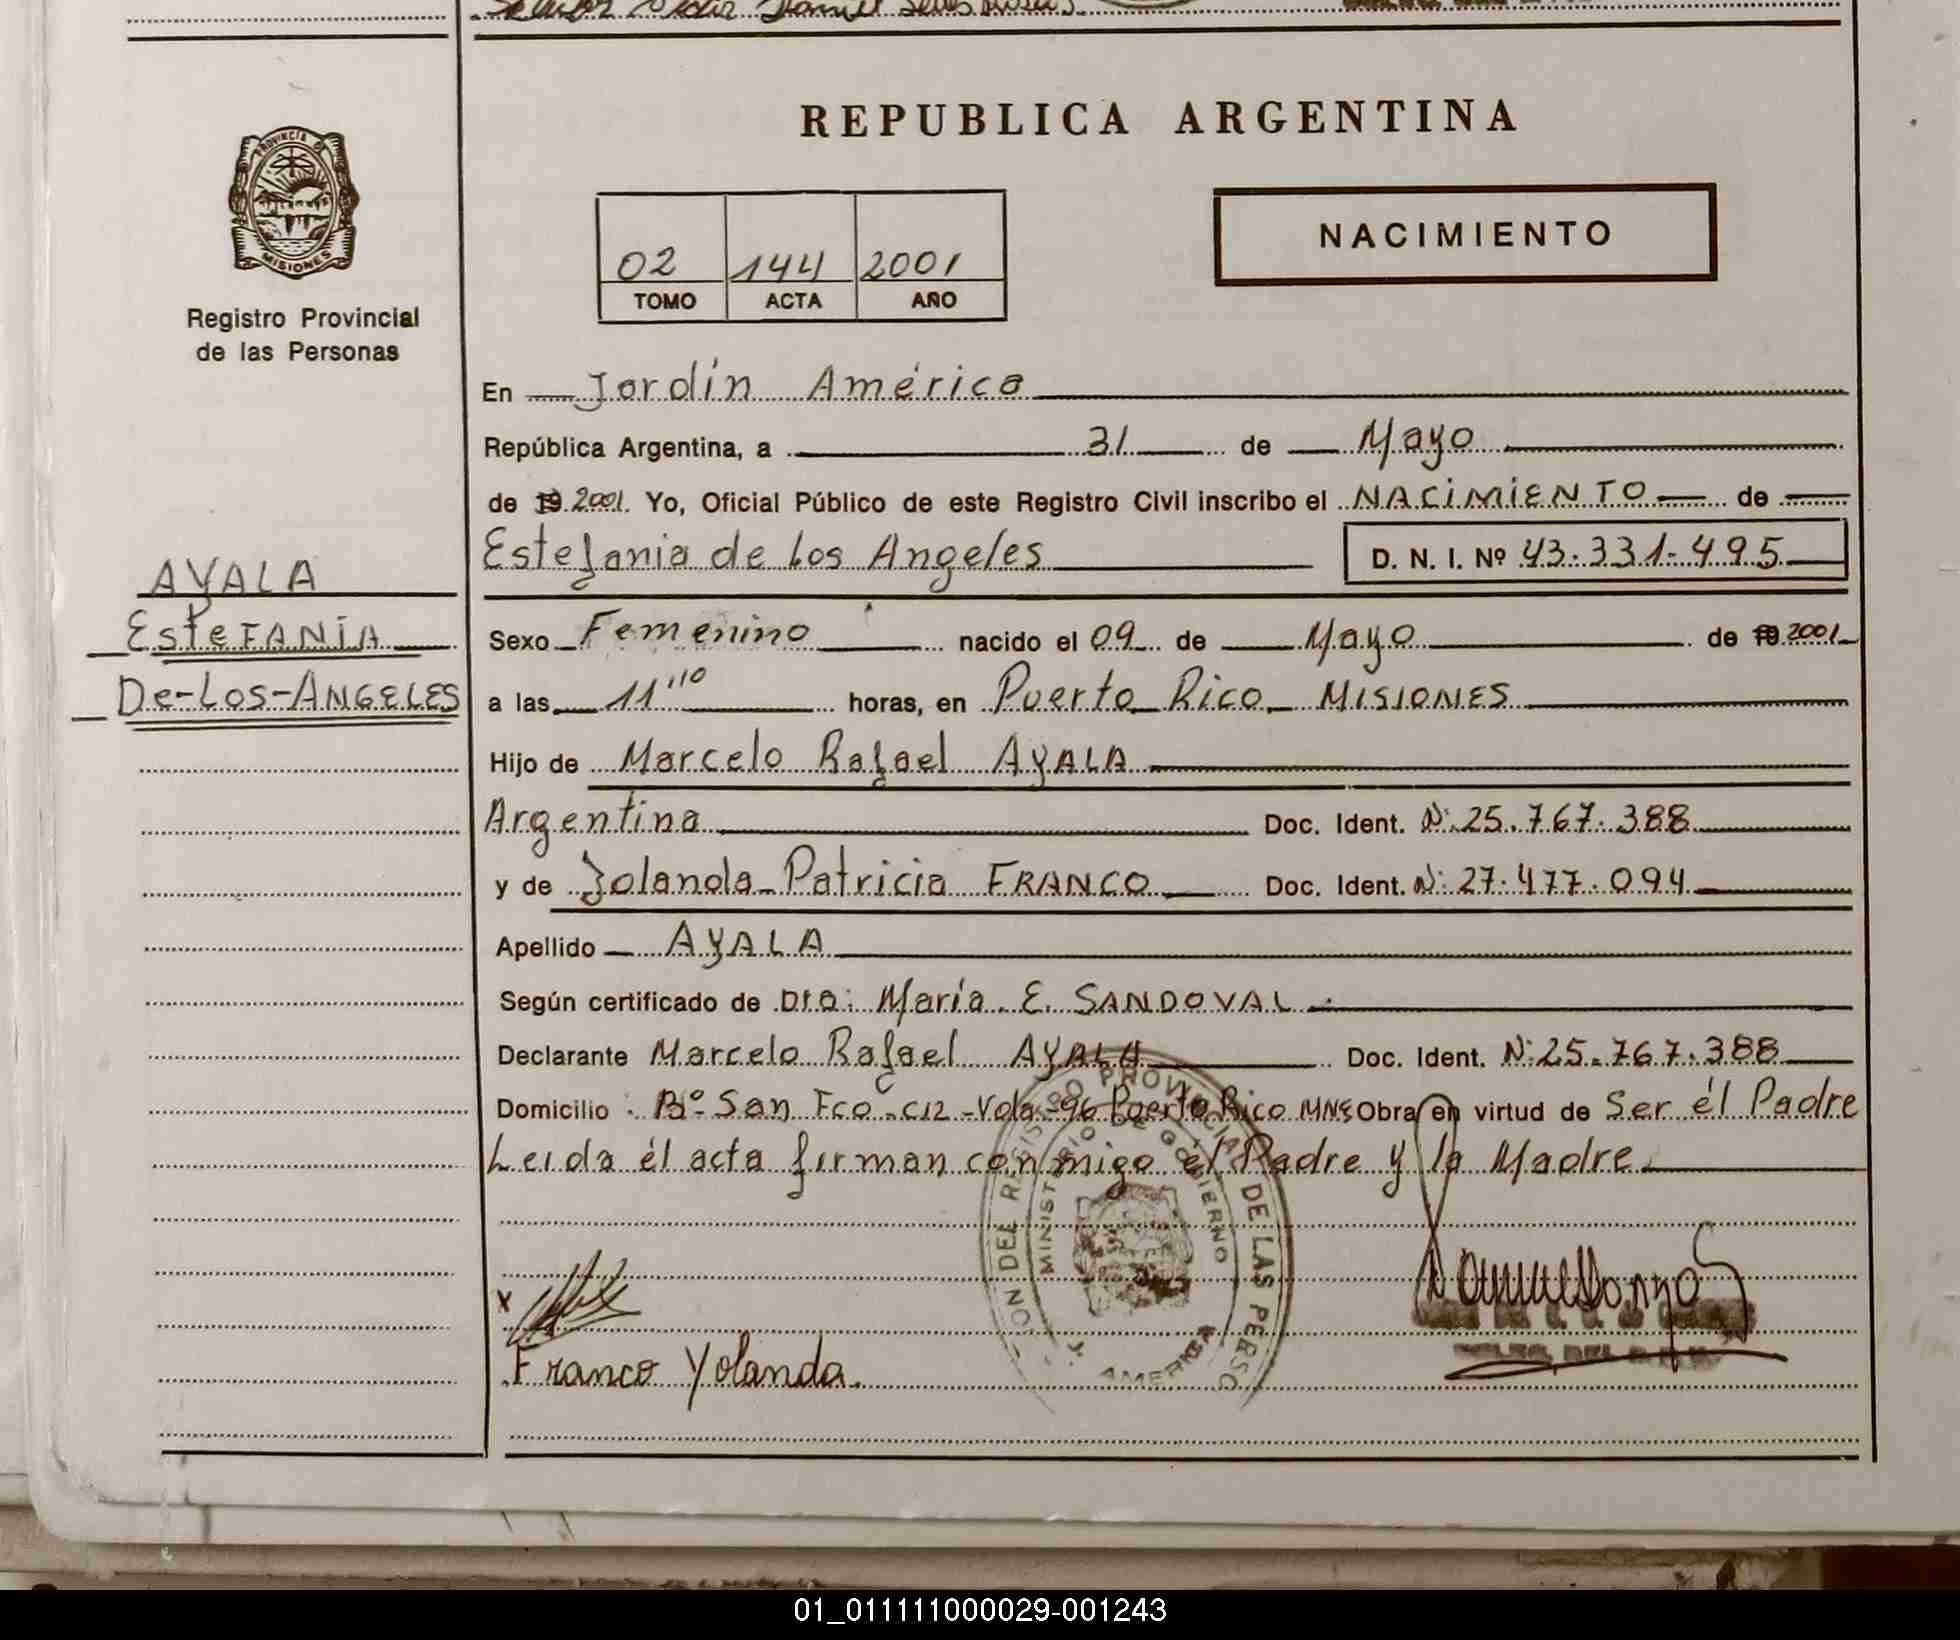 Señor Victor Daniel
REPUBLICA ARGENTINA
PROVINCIA DE
MISIONES
Registro Provincial
de las Personas
NACIMIENTO
02 144 2001
TOMO ACTA AÑO
En Jardín América
República Argentina, a 31 de Mayo
de 19 2001. Yo, Oficial Público de este Registro Civil inscribo el NACIMIENTO de
Estefania de Los Angeles D. N. I. Nº 43.331.495
AYALA
ESTEFANÍA
De-Los-ANGELES
Sexo Femenino nacido el 09 de Mayo de 19 2001
a las 11'10 horas, en Puerto Rico MISIONES
Hijo de Marcelo Rafael AYALA
Argentina Doc. Ident. Nº 25.767.388
y de Jolanda Patricia FRANCO Doc. Ident. Nº 27.477.094
Apellido AYALA
Según certificado de Dra: María E. SANDOVAL
Declarante Marcelo Rafael AYALA Doc. Ident. Nº 25.767.388
Domicilio Bº San Fco - C12 - Vda - 96 Puerto Rico MNES Obra en virtud de Ser él Padre
Leída él acta firman conmigo él Padre y la Madre
ON DEL REGISTRO PROVINCIAL DE LAS PERSO
MINISTERIO DE GOBIERNO
AMERICA
x
Franco Yolanda.
01_011111000029-001243